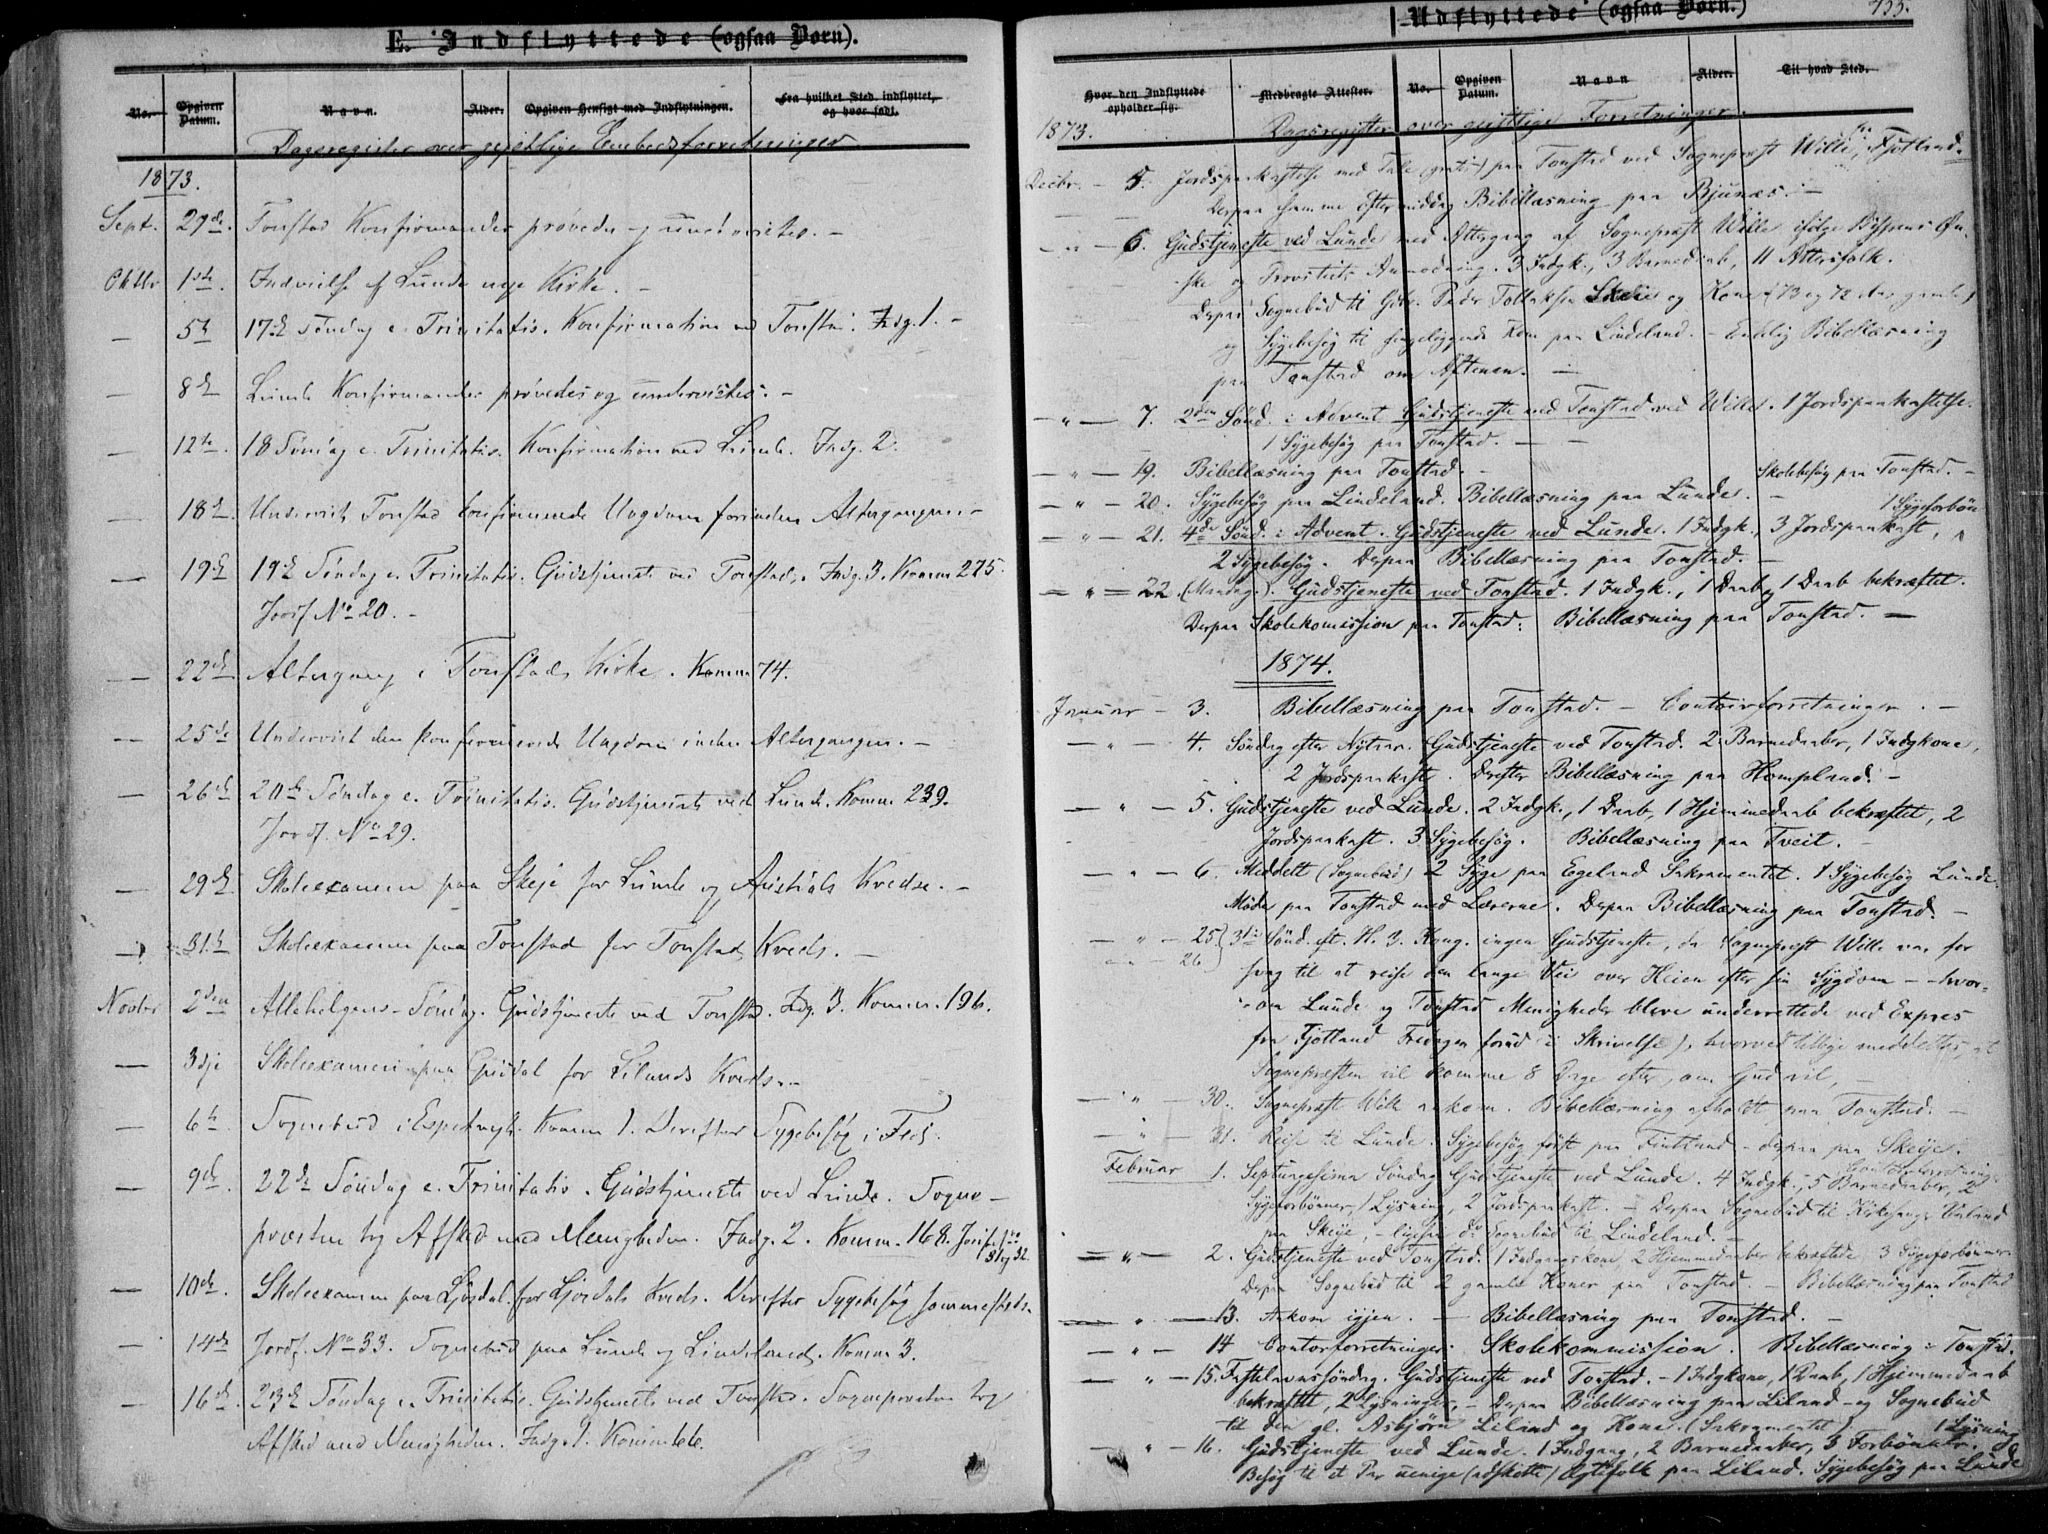 E. Indflyttede (ogsaa Børn).
No. Opgiven Datum. Navn. Alder. Opgiven Hensigt med Indflytningen. Fra hvilket Sted indflyttet, og hvor født.
Dagsregister over gejstlige Embedsforretninger
1873.
Sept. 29de. Tonstad Konfirmander prøvedes og undervistes. –
Oktbr 1ste. Indvielse af Lunde nye Kirke. –
— 5te 17de Søndag e. Trinitatis. Konfirmation ved Tonstad. Indg. 1. –
— 8de Lunde Konfirmander prøvedes og undervistes. –
— 12te. 18 Søndag e. Trinitatis. Konfirmation ved Lunde. Indg. 2.
— 18de. Underviste Tonstad konfirmerede Ungdom forinden Altergangen. –
— 19de 19de Søndag e. Trinitatis. Gudstjeneste ved Tonstad. Indg. 3. Komm. 225.
Jordf. No 20. –
— 22de Altergang i Tonstads Kirke. Komm 74.
— 25de Undervist den konfirmerede Ungdom inden Altergangen. –
— 26de 20de Søndag e. Trinitatis. Gudstjeneste ved Lunde. Komm. 239.
Jordf. No 29.
— 29de Skoleexamen paa Skeje for Lunde og Austdals Kredse. –
— 31te Skoleexamen paa Tonstad for Tonstad Kreds. –
Novbr 2den Allehelgens-Søndag. Gudstjeneste ved Tonstad. Indg. 3. Komm. 196.
— 3dje Skoleexamen paa Guddal for Lilands Kreds. –
— 6te Sognebud i Espetvejt. Komm 1. Derefter Sygebesøg i
— 9de. 22de Søndag e. Trinitatis. Gudstjeneste ved Lunde. Sogne-
præsten tog Afsked med Menigheden. Indg. 2. Komm. 168. Jordf. No
31 og 32.
— 10de. Skoleexamen paa Gjøsdal for Gjøsdals Kreds. Derefter Sygebesøg sammesteds.
— 14de Jordf. No 33. Sognebud paa Lunde og Lindeland. Komm 3.
— 16de. 23de Søndag e. Trinitatis. Gudstjeneste ved Tonstad. Sognepræsten tog
Afsked med Menigheden. Indg. 1. Komm 66.
Udflyttede (ogsaa Børn.) 455.
Hvor den Indflyttede opholder sig. Medbragte Attester. No. Opgiven Datum. Navn Alder. Til hvad Sted.
1873. Dagsregister over gejstlige Forretninger.
Decbr. – 5. Jordspaakastelse med Tale (gratis) paa Tonstad ved Sognepræst Wille, fra Fjotland.
Derpaa samme Eftermiddag Bibellæsning paa Bjunæs. –
– „ – 6. Gudstjeneste ved Lunde med Altergang af Sognepræst Wille ifølge Bispens Øn-
ske og Provstens Anmodning. 3 Indgk., 3 Barnedaab, 11 Altersfolk.
Derpaa Sognebud til Gbr. Peder Tollaksen Skeie og Kone (73 og 72 Aar gamle)
og Sygebesøg til sengeliggende Kone paa Lindeland. – Endelig Bibellæsning
paa Tonstad om Aftenen. –
– „ – 7. 2den Sønd. i Advent Gudstjeneste ved Tonstad ved Wille. 1 Jordspaakastelse.
1 Sygebesøg paa Tonstad. –
– „ – 19. Bibellæsning paa Tonstad. – Skolebesøg paa Tonstad. –
– „ – 20. Sygebesøg paa Lindeland. Bibellæsning paa Lunde. – 1 Sygeforbøn
– „ – 21. 4de Sønd. i Advent. Gudstjeneste ved Lunde. 1 Indgk., 3 Jordspaakast,
2 Sygebesøg. Derpaa Bibellæsning paa Tonstad. –
– „ – 22. (Mandag). Gudstjeneste ved Tonstad. 1 Indgk., 1 Daab, 1 Daab bekræftet.
Derpaa Skolekomission paa Tonstad. Bibellæsning paa Tonstad. –
1874.
Januar – 3. Bibellæsning paa Tonstad. – Contoirforretninger. –
– „ – 4. Søndag efter Nytaar. Gudstjeneste ved Tonstad. 2 Barnedaaber, 1 Indgkone,
2 Jordspaakast. Derefter Bibellæsning paa Hompland. –
– „ – 5. Gudstjeneste ved Lunde. 2 Indgk., 1 Daab, 1 Hjemmedaab bekræftet, 2
Jordspaakast. 3 Sygebesøg. Bibellæsning paa Tveit. –
– „ – 6. Meddelt (Sognebud) 2 Syge paa Egeland Sakramentet. 1 Sygebesøg Lunde.
Møde paa Tonstad med Lærerne. Derpaa Bibellæsning paa Tonstad. –
– „ – 25 } 3die Sønd. eft. H. 3. Kong. ingen Gudstjeneste, da Sognepræst Wille var for
– „ – 26 } svag til at reise den lange Vei over Heien efter sin Sygdom – hvor-
om Lunde og Tonstad Menigheder bleve underrettede ved Expres
fra Fjotland Fredagen forud (i Skrivelse), hvorved tillige meddeltes, at
Sognepræsten vil komme 8 Dage efter, om Gud vil, –
– „ – 30. Sognepræst Wille ankom. Bibellæsning afholdt paa Tonstad. –
– „ – 31. Reise til Lunde. Sygebesøg først paa Fintland – derpaa paa Skeije.
Februar 1. Septuagesima Søndag Gudstjeneste ved Lunde. 4 Indgk., 5 Barnedaaber, 2
Sygeforbønner, 1 Lysning, 2 Jordspaakast. – Derpaa Sognebud til Kirkesanger
paa Skeije, – ligesaa do Sognebud til Lindeland. –
– „ – 2. Gudstjeneste ved Tonstad. 1 Indgangskone, 2 Hjemmedaaber bekræftede, 3 Sygeforbønner.
Derpaa Sognebud til 2 gamle Koner paa Tonstad – Bibellæsning paa Tonstad
– „ – 13. Ankom igjen. – Bibellæsning paa Tonstad. –
– „ – 14 Contorforretninger. Skolekommission. Bibellæsning i Tonstad.
– „ – 15. Fastelavnssøndag. Gudstjeneste ved Tonstad. – 1 Indgkone, 1 Daab, 1 Hjemmedaab
bekræftet, 2 Lysninger, – Derpaa Bibellæsning paa Liland – og Sognebud
til den gl. Asbjørn Liland og Kone. (Sakramentet). 1 Lysning
– „ – 16. Gudstjeneste ved Lunde. 1 Indgang, 2 Barnedaaber, 3 Forbønner.
Besøg til et Par uenige (adskilte) Ægtefolk paa Liland. Sygebesøg paa Lunde